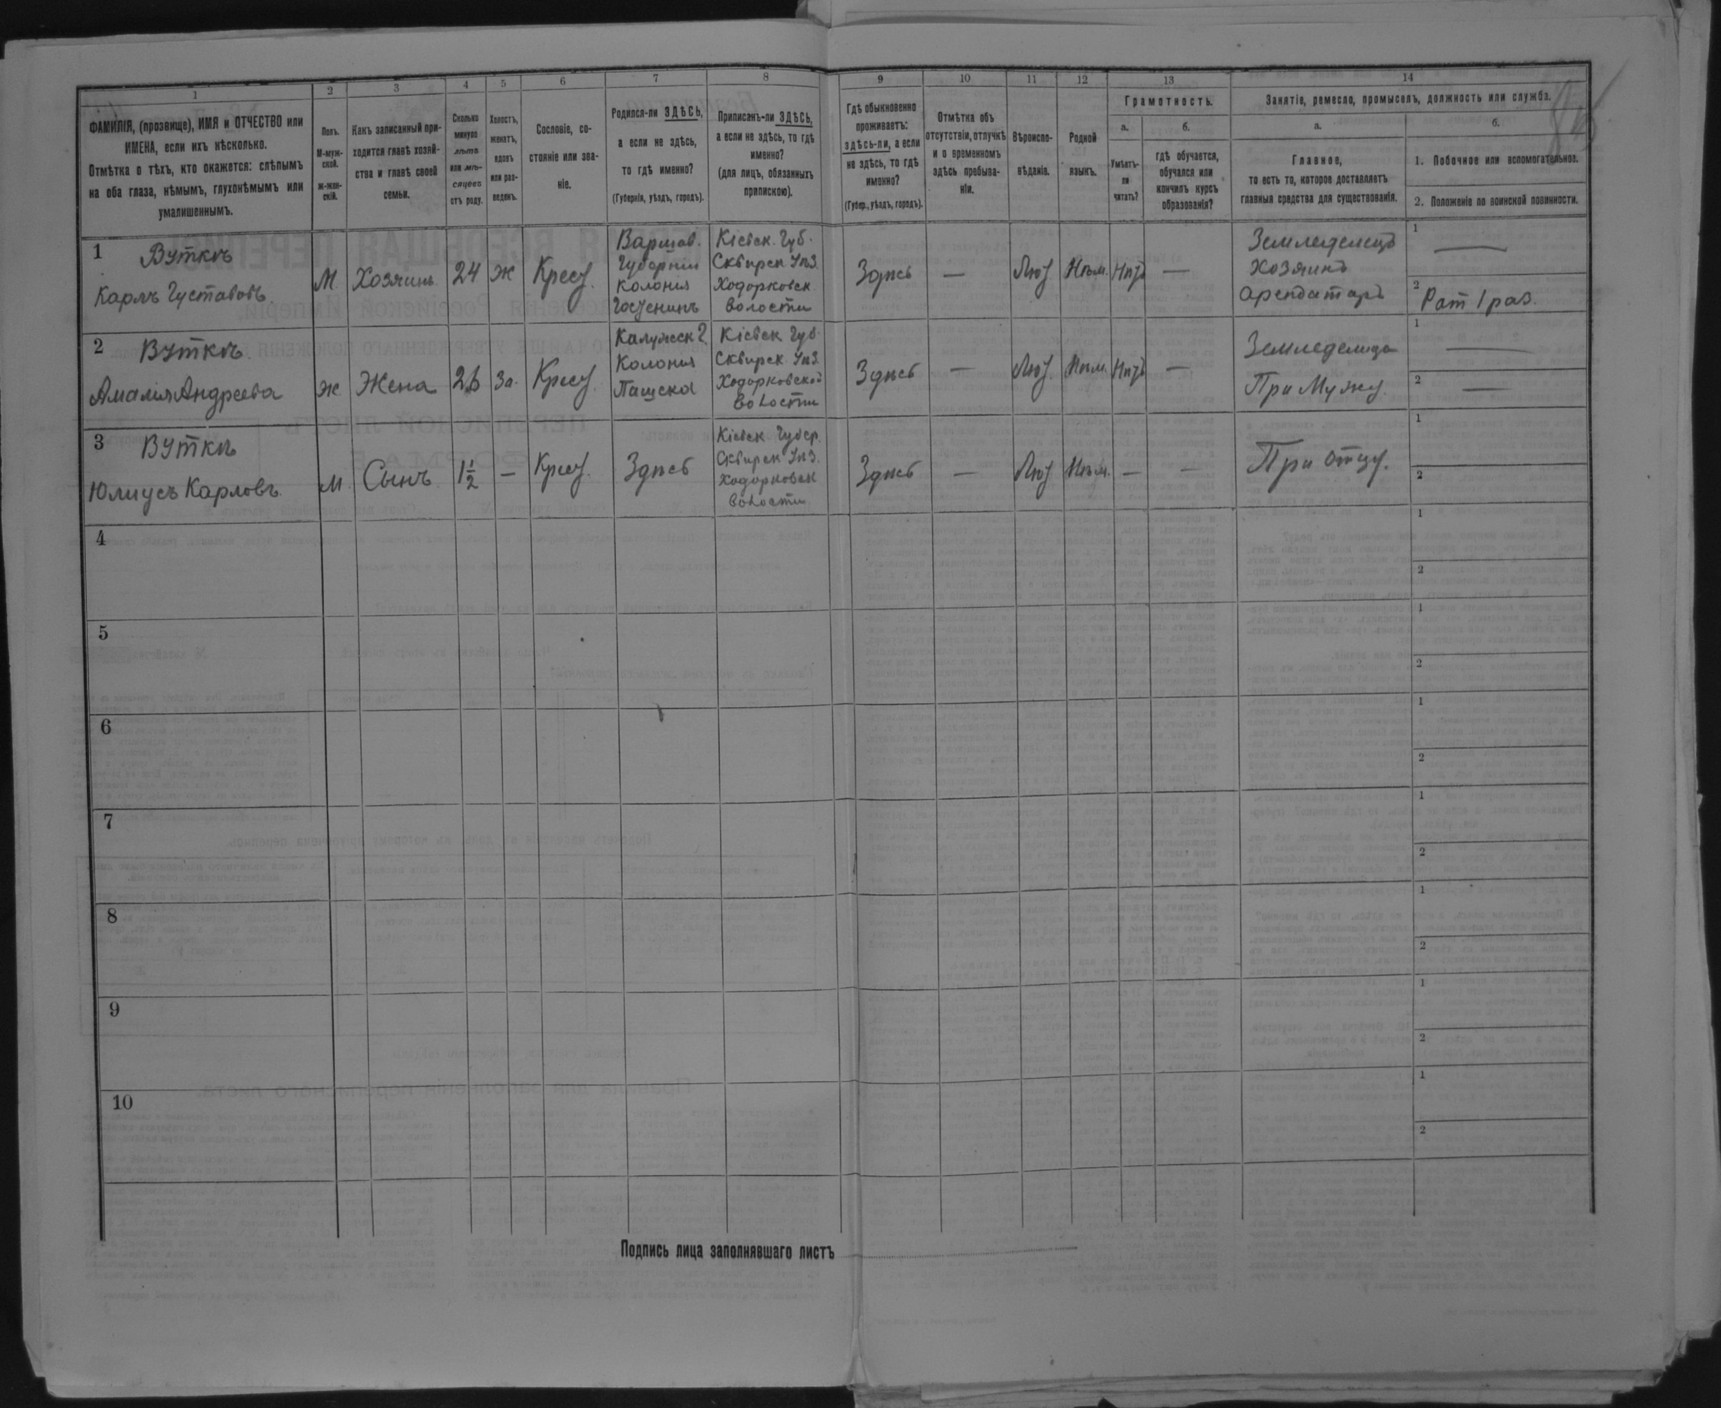 1 2 3 4 5 6 7 8 9 10 11 12 13 14
ФАМИЛІЯ, (прозвище), ИМЯ и ОТЧЕСТВО или
ИМЕНА, если ихъ нѣсколько.
Отмѣтка о тѣхъ, кто окажется: слѣпымъ
на оба глаза, нѣмымъ, глухонѣмымъ или
умалишеннымъ.
Полъ.
М-муж-
ской.
ж-жен-
скій.
Какъ записанный при-
ходится главѣ хозяй-
ства и главѣ своей
семьи.
Сколько
минуло
лѣтъ
или мѣ-
сяцевъ
отъ роду.
Холостъ,
женатъ,
вдовъ
или раз-
веденъ.
Сословіе, со-
стояніе или зва-
ніе.
Родился-ли ЗДѢСЬ,
а если не здѣсь,
то гдѣ именно?
(Губернія, уѣздъ, городъ).
Приписанъ-ли ЗДѢСЬ,
а если не здѣсь, то гдѣ
именно?
(для лицъ, обязанныхъ
припискою).
Гдѣ обыкновенно
проживаетъ:
здѣсь-ли, а если
не здѣсь, то гдѣ
именно?
(Губер., уѣздъ, городъ).
Отмѣтка объ
отсутствіи, отлучкѣ
и о временномъ
здѣсь пребыва-
ніи.
Вѣроиспо-
вѣданіе.
Родной
языкъ.
Грамотность.
а.
Умѣетъ-
ли
читать?
б.
гдѣ обучается,
обучался или
кончилъ курсъ
образованія?
Занятіе, ремесло, промыселъ, должность или служба.
а.
Главное,
то есть то, которое доставляетъ
главныя средства для существованія.
б.
1. Побочное или вспомогательное.
2. Положеніе по воинской повинности.
1
Вуткъ
Карлъ Густавовъ
М.
Хозяинъ
24
Ж
Крест.
Варшав.
Губернии
Колония
Кіевск. Губ.
Сквирск. Уѣз.
Ходорковск.
Волости
Здѣсь
—
Лют
Нѣм.
Нѣтъ
—
Земледелецъ
Хозяинъ
Арендаторъ
1 —
2 Рат 1 раз.
2
Вуткъ
Амалия Андреева
Ж
Жена
За.
Крест.
Калужск. Г.
Колония
Кіевск. Губ.
Сквирск. Уѣз.
Ходорковской
Волости
Здѣсь
—
Лют
Нѣм.
Нѣтъ
—
Земледелица
При Мужу.
1 —
2 —
3
Вуткъ
Юлиусъ Карловъ
М.
Сынъ
1 1/2
—
Крест.
Здѣсь
Кіевск. Губер.
Сквирск. Уѣз.
Ходорковск
Волости
Здѣсь
—
Лют
Нѣм.
—
—
При Отцу.
1
2
4
1
2
5
1
2
6
1
2
7
1
2
8
1
2
9
1
2
10
1
2
Подпись лица заполнявшаго листъ